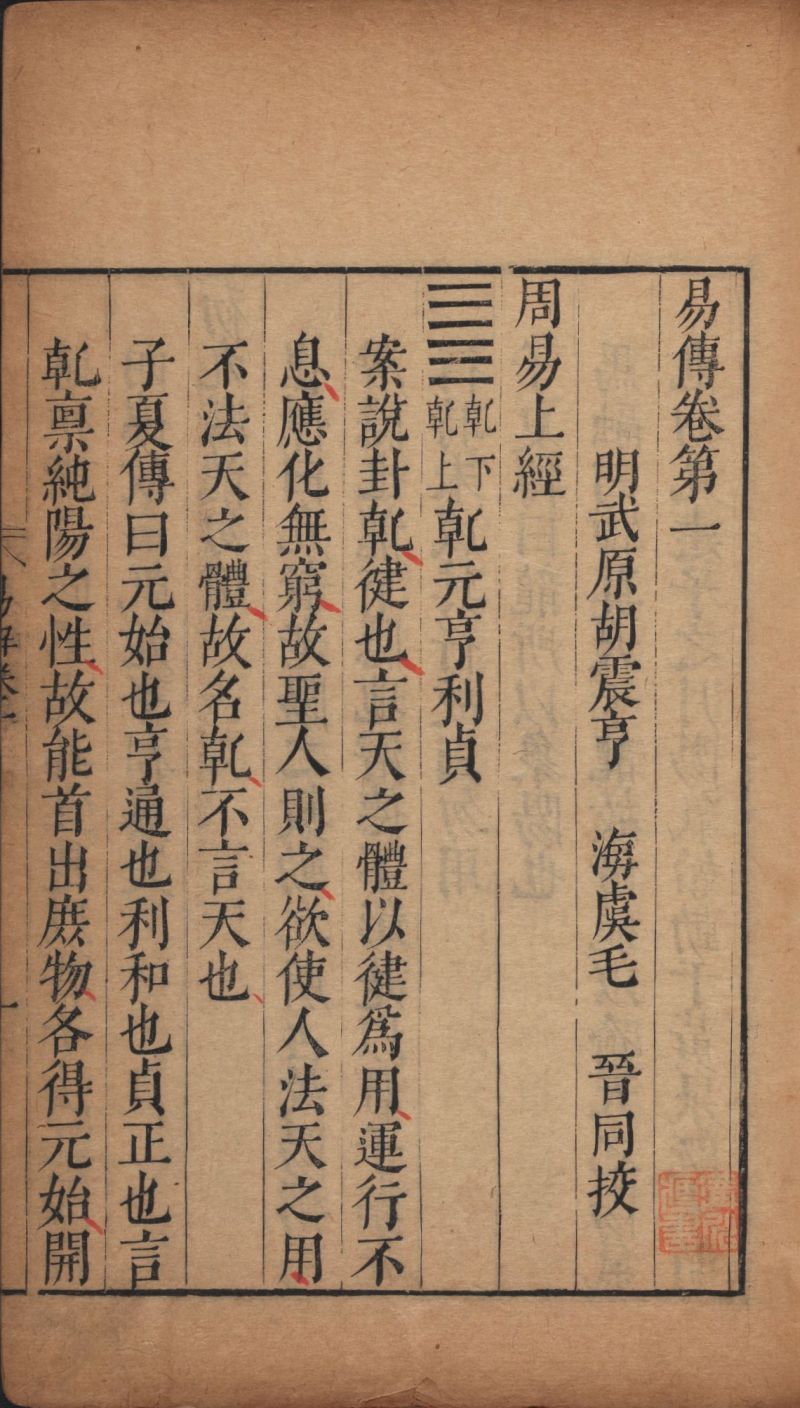 易傳卷第一
明武原胡震亨 海虞毛 晉同挍
周易上經
䷀乾下乾上乾元亨利貞
案說卦乾健也言天之體以健爲用運行不
息應化無窮故聖人則之欲使人法天之用
不法天之體故名乾不言天也
子夏傳曰元始也亨通也利和也貞正也言
乾稟純陽之性故能首出庶物各得元始開